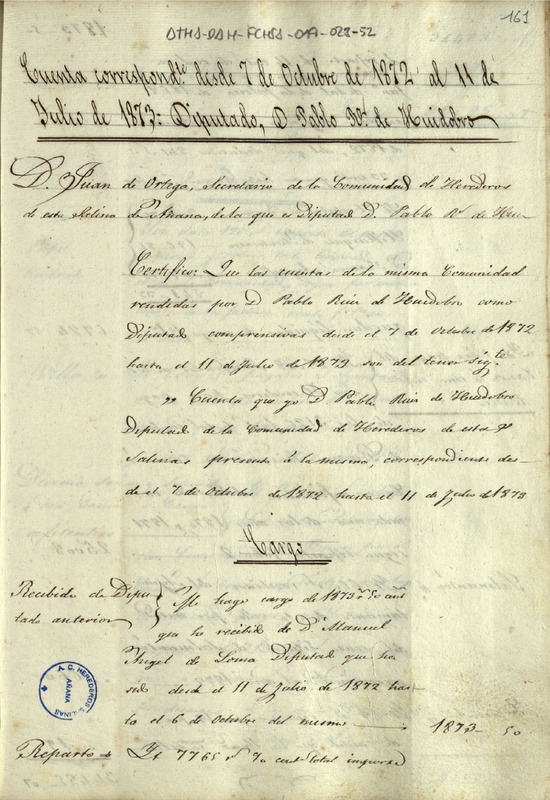 161
ATHA-DAH-FCHSA-019-028-52
Cuenta correspond.te desde 7 de Octubre de 1872 al 11 de
Julio de 1873: Diputado, D Pablo Rz. de Huidobro
D. Juan de Ortega, Secretario de la Comunidad de Herederos
de esta Salina de Añana, de la que es Diputad D. Pablo Rz de Hui-
Certifico: Que las cuentas de la misma Comunidad
rendidas por D Pablo Ruiz de Huidobro como
Diputad comprensivas desde el 7 de Octubre de 1872
hasta el 11 de Julio de 1873 son del tenor sigte.
" Cuenta que yo D Pablo Ruiz de Huidobro
Diputad de la Comunidad de Herederos de estas Rs
Salinas presento á la misma, correspondiente des-
de el 7 de Octubre de 1872 hasta el 11 de Julio de 1873
Cargo
Recibido de Dipu
tado anterior
Me hago cargo de 1873 rs 50 cent
que he recibido de Dn Manuel
Angel de Loma Diputad que ha
sido desde el 11 de Julio de 1872 has-
ta el 6 de Octubre del mismo 1873 50
A.C. HEREDEROS SALINAS
AÑANA
Reparto Yt 7765 rs 70 cent total importe